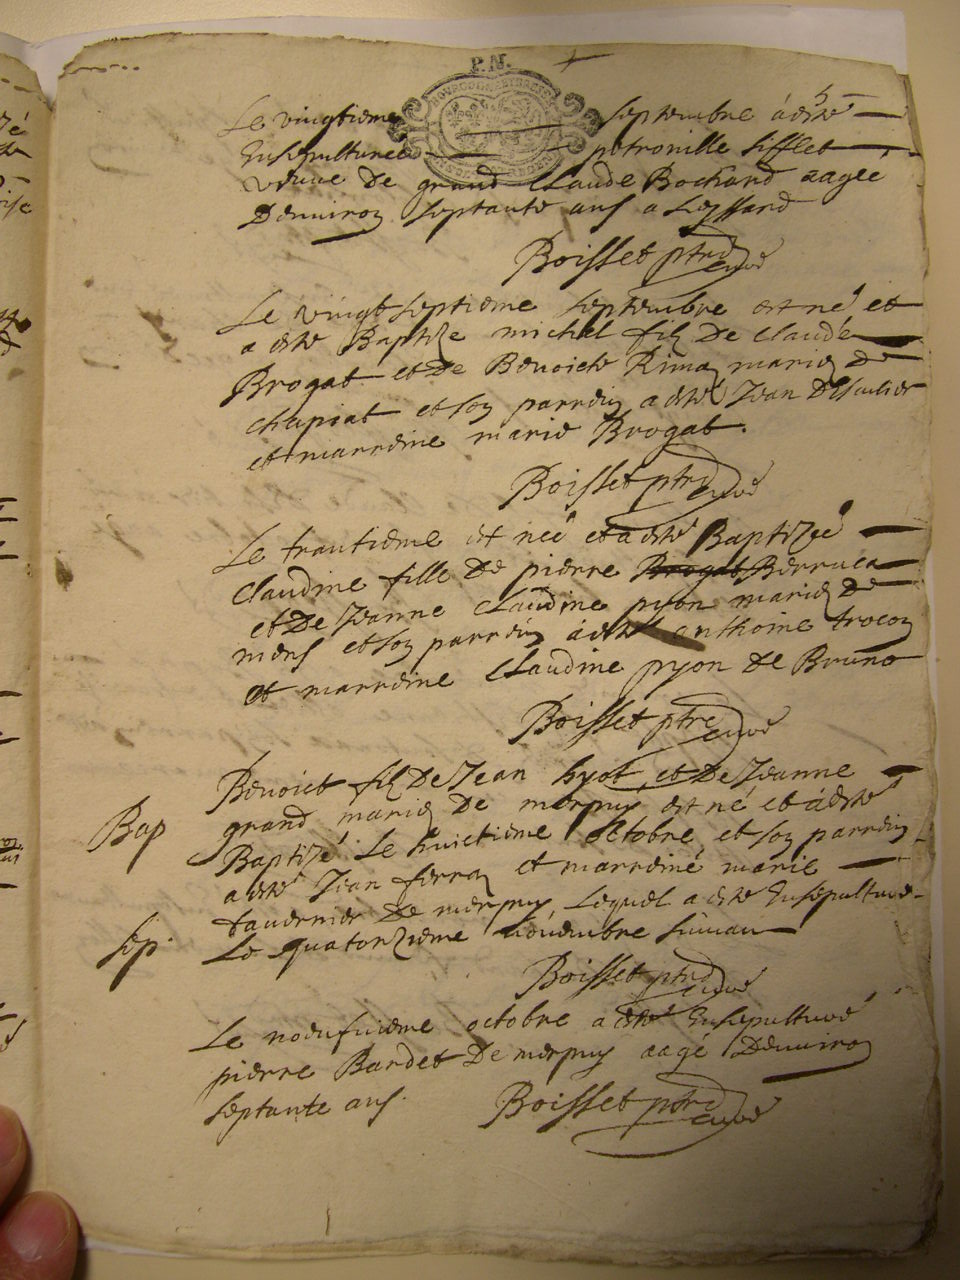 P.N.
Le vingtieme septembre á esté
Ensepulturee petronille sifflet
veuve De grand Claude Bochard aagee
Denviron septante ans a Leyssard
Boisset ptre curé
Le vingt septieme septembre est né et
a esté Baptize michel filz De Claude
Brogat et De Benoiste mariez De
chapiat et son parrein a esté Jean
et marreine marie Brogat.
Boisset ptre curé
Le trantieme est neé et a esté Baptizeé
Claudine fille De pierre Brogat Berruca
et De Jeanne Claudine pyon mariez De
mens et son parrein á esté anthoine trocon
et marreine Claudine pyon De Bruno
Boisset ptre curé
Benoict filz De Jean hyot et De Jeanne
Bap grand mariez De merpuy est né et á esté
Baptizé Le huictieme octobre et son parrein
a esté Jean ferra et marreiné marie
tavernier De merpuy, Lequel a esté Ensepulturé
sep. Le quatorzieme novembre suivan
Boisset ptre curé
Le neufvieme octobre a esté Ensepulturé
pierre Bardet De merpuy aagé Denviron
septante ans. Boisset ptre curé